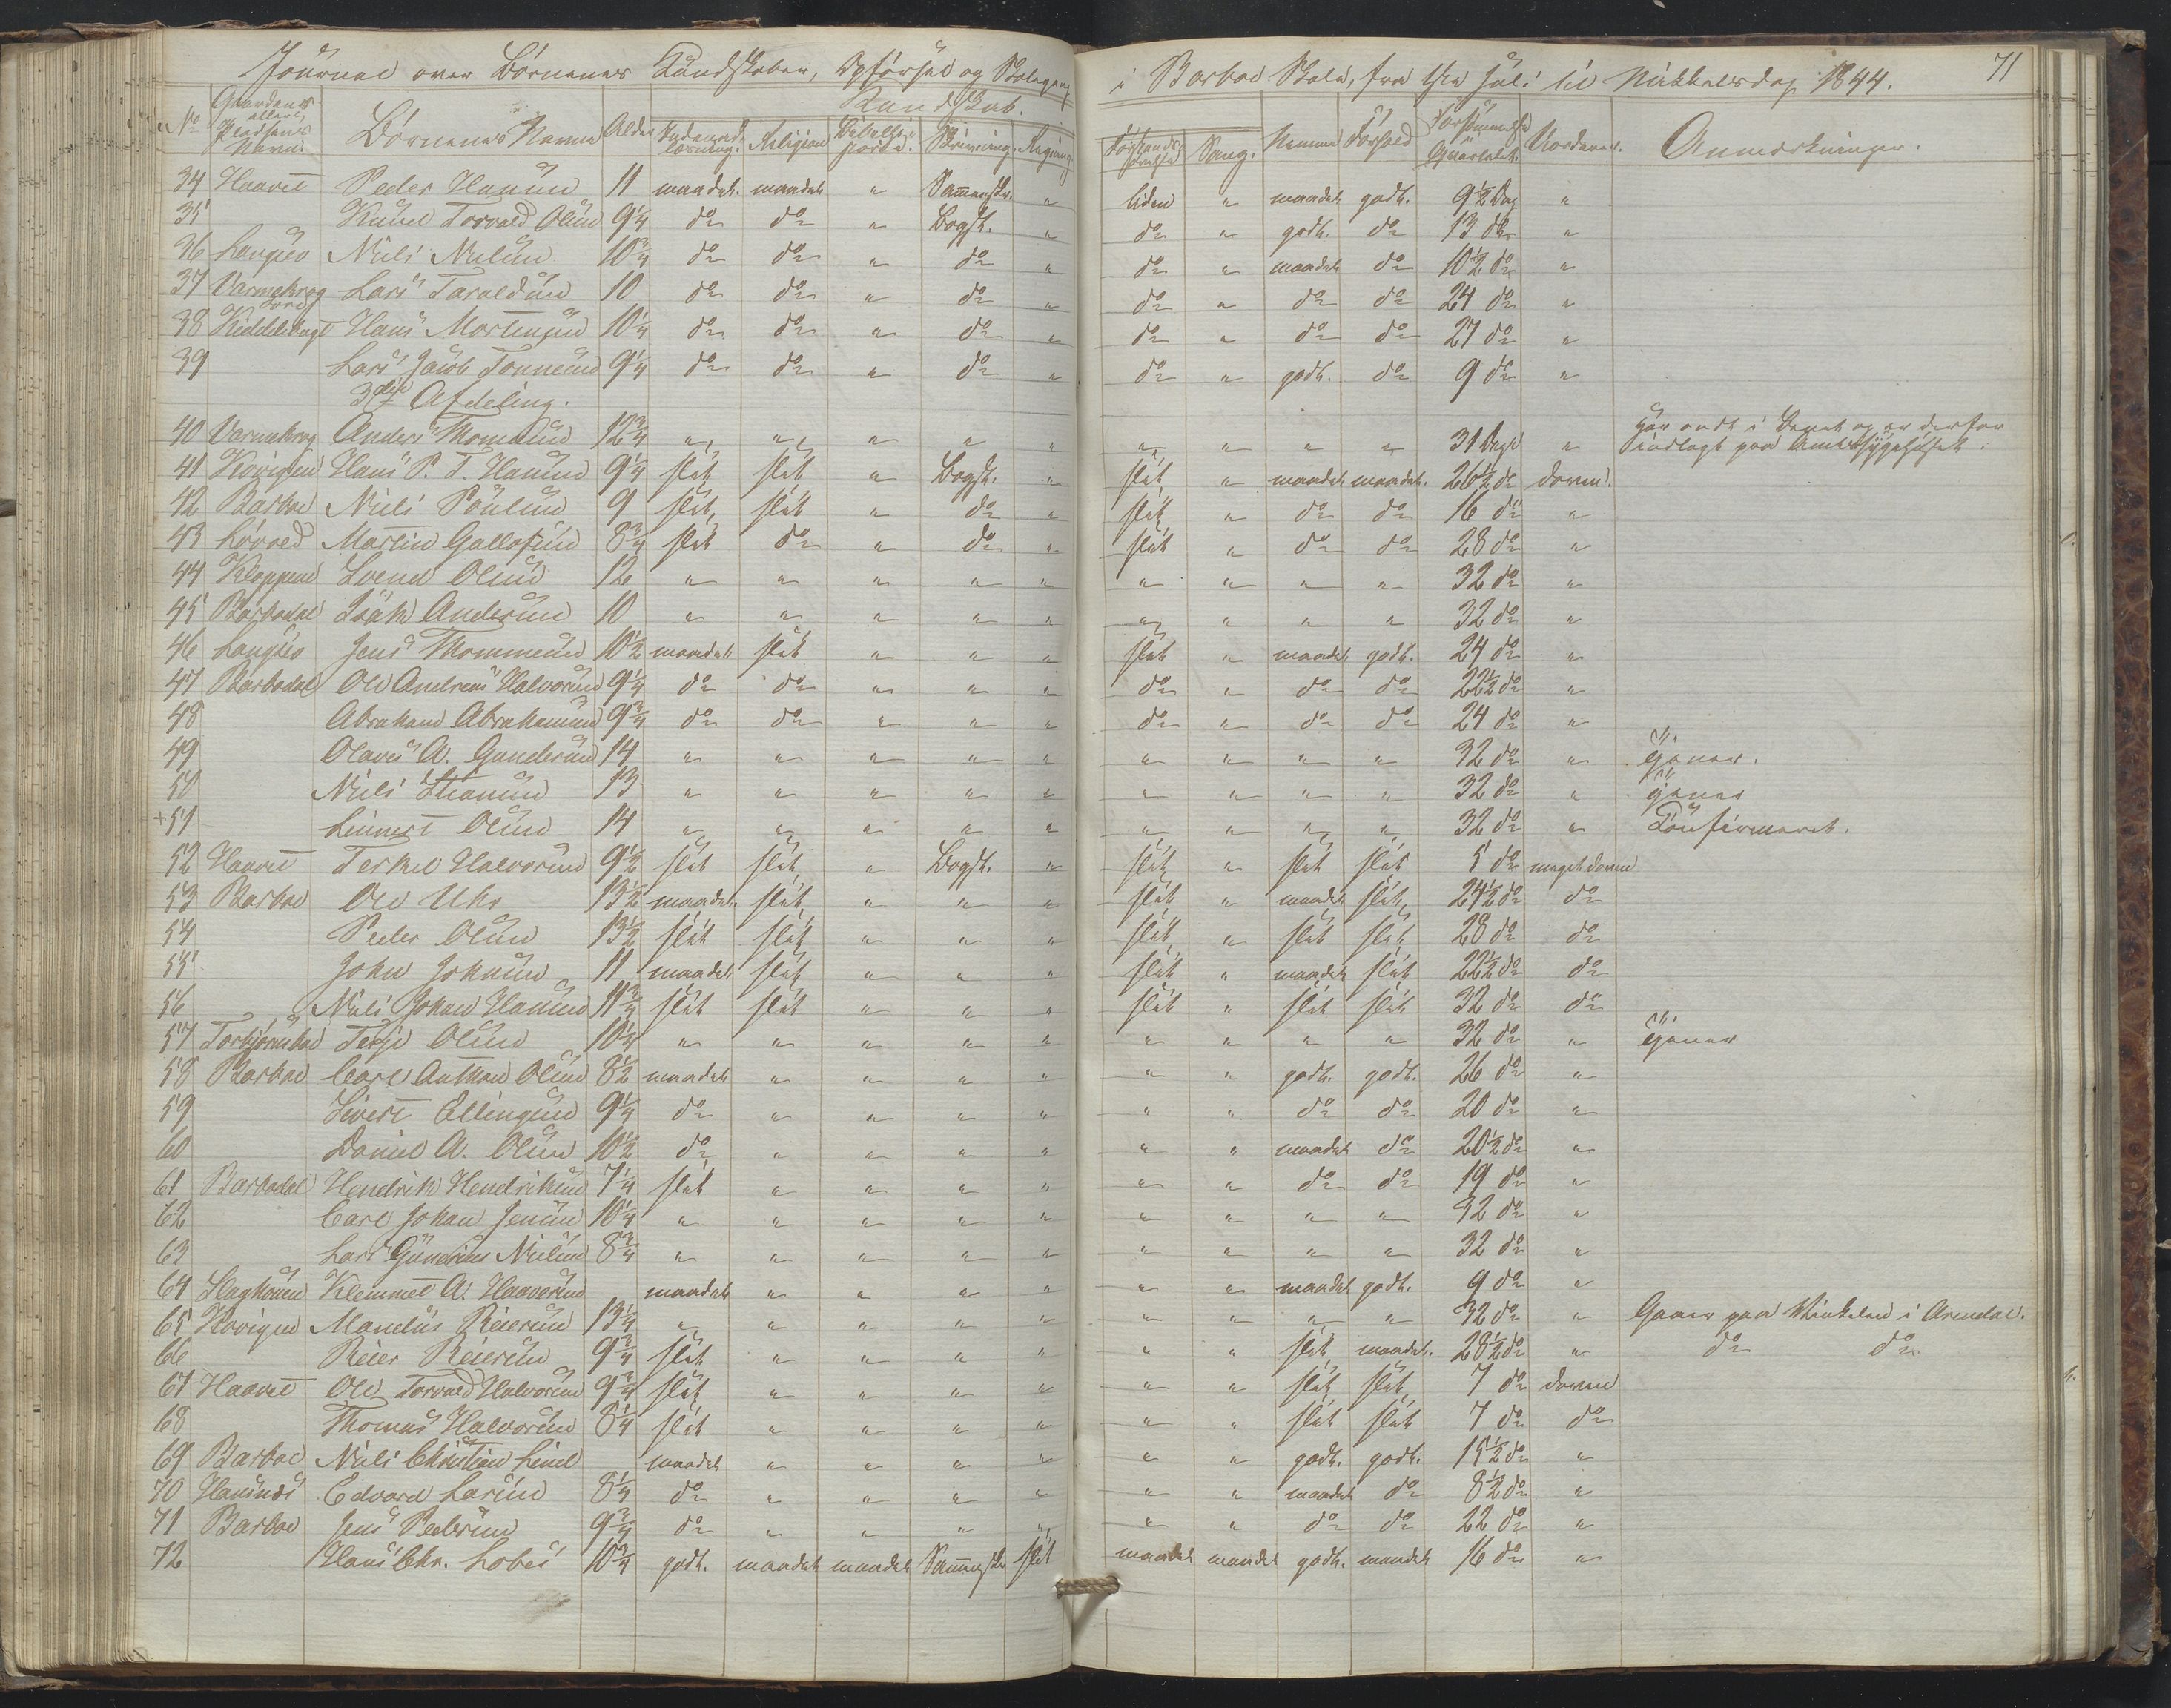 71
Journal over Börnenes Kundskaber, Opförsel og Skolegang i Barboe Skole, fra 1ste Juli til Mikkelsdag 1844.
Kundskab.
No Gaardens eller Pladsens Navn. Börnenes Navne Alder Indenads læsning. Religion Bibelhistorie. Skrivning. Regning. Forstands Sang. Nemme Forhold Forsømmelse i Qvartalet. Uordener. Anmærkninger.
34 Haavet Peder Hansen 11 maadel. maadel. " Sammenskr. " liden " maadel. godt. 9½ Dag "
35 Knud Torvald Olsen 9¼ do do " Bogst. " do " godt. do 13 do "
36 Langsæ Niels Nielsen 10¾ do do " do " do " maadel. do 10½ do "
37 Varmekrog Lars Taraldsen 10 do do " do " do " do do 24 do "
38 Kiddelsbugt Hans Mortensen 10¼ do do " do " do " do do 27 do "
39 Lars Jacob Tonnesen 9¼ do do " do " do " godt. do 9 do "
3die Afdeling.
40 Varmekrog Anders Thomasen 12¾ " " " " " " " " " 31 Dage " har ondt i Benet og er derfor
indlagt paa Amtssygehuset.
41 Kovigen Hans P. T. Hansen 9¼ slet slet " Bogst. " slet " maadel. maadel. 26½ do doven.
42 Barboe Niels Poulsen 9 slet slet " do " slet " do do 16 do "
43 Lövold Martin Gallofsen 8¾ slet do " do " slet " do do 28 do "
44 Kloppene Svend Olsen 12 " " " " " " " " " 32 do "
45 Barbodal Isak Andersen 10 " " " " " " " " " 32 do "
46 Langsæ Jens Thommesen 10½ maadel. slet " " " slet " maadel. godt. 24 do "
47 Barbodal Ole Andreas Halvorsen 9¼ do do " " " do " do do 22½ do "
48 Abraham Abrahamsen 9¾ do do " " " do " do do 24 do "
49 Olaves A. Gundersen 14 " " " " " " " " " 32 do " tjener.
50 Niels Stiansen 13 " " " " " " " " " 32 do " tjener
+51 Lennert Olsen 14 " " " " " " " " " 32 do " Confirmeret.
52 Haavet Terkel Halvorsen 9½ slet slet " Bogst. " slet " slet slet 5 do meget doven
53 Barboe Ole Uhr 13½ maadel. slet " " " slet " maadel. slet 24½ do do
54 Peder Olsen 13½ slet slet " " " slet " slet slet 28 do do
55 John Johnsen 11 maadel. slet " " " slet " maadel. slet 22½ do do
56 Niels Johan Hansen 11¾ slet slet " " " slet " slet slet 32 do do
57 Torbjörnsboe Terje Olsen 10¼ " " " " " " " " " 32 do " tjener
58 Barboe Carl Anthon Olsen 8½ maadel. " " " " " " godt. godt. 26 do "
59 Sivert Ellingsen 9¼ do " " " " " " do do 20 do "
60 Daniel A. Olsen 10½ do " " " " " " maadel. do 20½ do "
61 Barbodal Hendrik Hendriksen 7¼ slet " " " " " " do do 19 do "
62 Carl Johan Jensen 10¼ " " " " " " " " " 32 do "
63 Lars Gunerius Nielsen 8¾ " " " " " " " " " 32 do "
64 Klemmet A. Haaversen maadel. " " " " " " maadel. godt. 9 do "
65 Kovigen Mandius Reiersen 13¼ " " " " " " " " " 32 do " Gaaer paa Skolen i Arendal.
66 Reier Reiersen 9¾ slet " " " " " " slet maadel. 28½ do " do do
67 Haavet Ole Torvald Halvorsen 9¾ slet " " " " " " slet slet 7 do doven
68 Thomas Halvorsen 8¼ slet " " " " " " slet slet 7 do do
69 Barboe Niels Christian Lind maadel. " " " " " " godt. godt. 15½ do "
70 Edvard Larsen 8¼ do " " " " " " maadel. do 8½ do "
71 Barboe Jens Pedersen 9¾ do " " " " " " do do 22 do "
72 Hans Chr. Lobes 10¾ godt. maadel. maadel. Sammenskr. slet maadel. maadel. godt. maadel. 16 do "